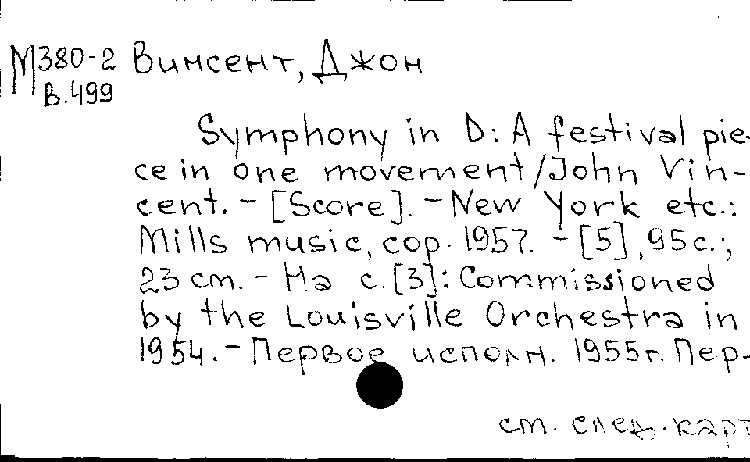 М380-2 Винсент, Джон
В.499
Symphony in D: A festival pie-
ce in one movement/John Vin-
cent. - [Score]. - New York etc.:
Mills music, cop. 1957. - [5], 95 с.;
23 cm. - На с. [3]: Commissioned
by the Louisville Orchestra in
1954. - Первое исполн. 1955 г. Пер-
см. след. карт